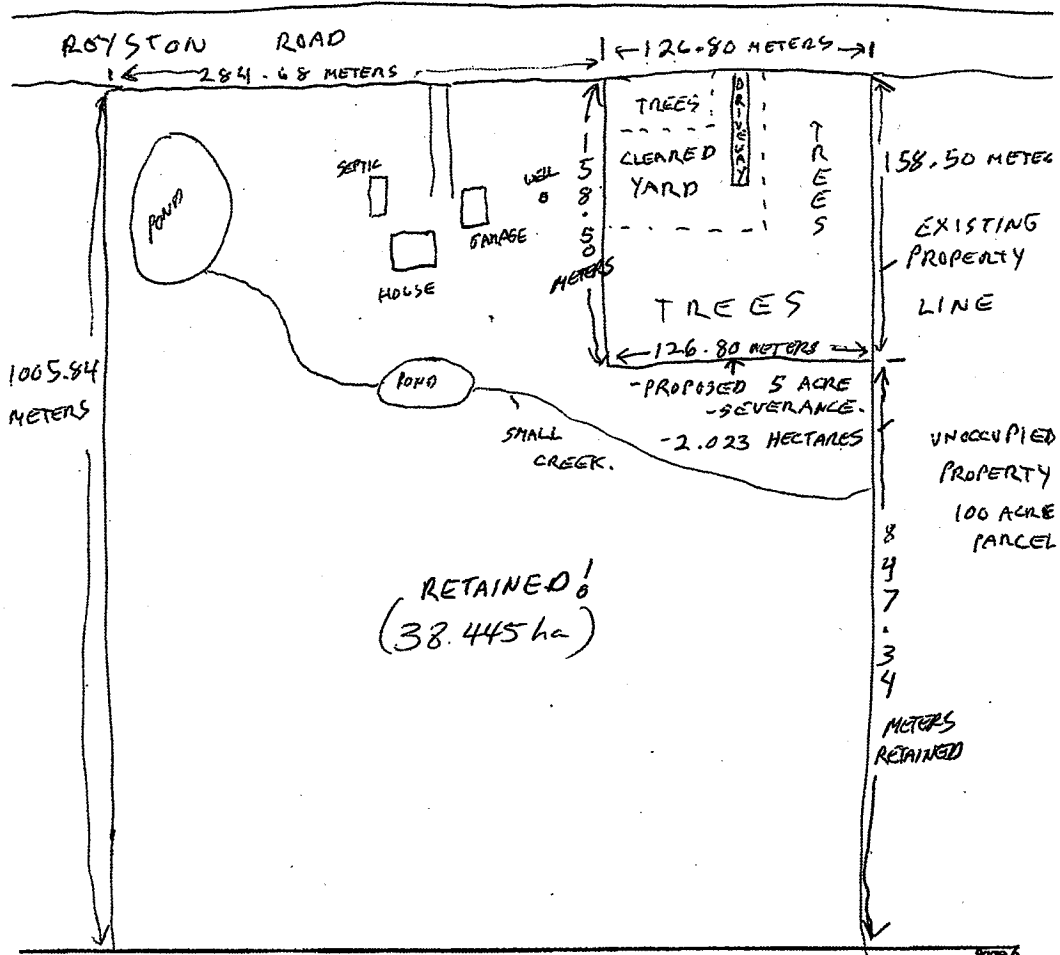 ROYSTON ROAD
284.68 METERS
126.80 METERS
TREES
DRIVEWAY
CLEARED
YARD
TREES
158.50 METERS
158.50 METE
EXISTING
PROPERTY
LINE
POND
SEPTIC
WELL
GARAGE
HOUSE
TREES
126.80 METERS
-PROPOSED 5 ACRE
-SEVERANCE.
-2.023 HECTARES
1005.84
METERS
POND
SMALL
CREEK.
UNOCCUPIED
PROPERTY
100 ACRE
PARCEL
RETAINED!
(38.445 ha)
847.34
METERS
RETAINED